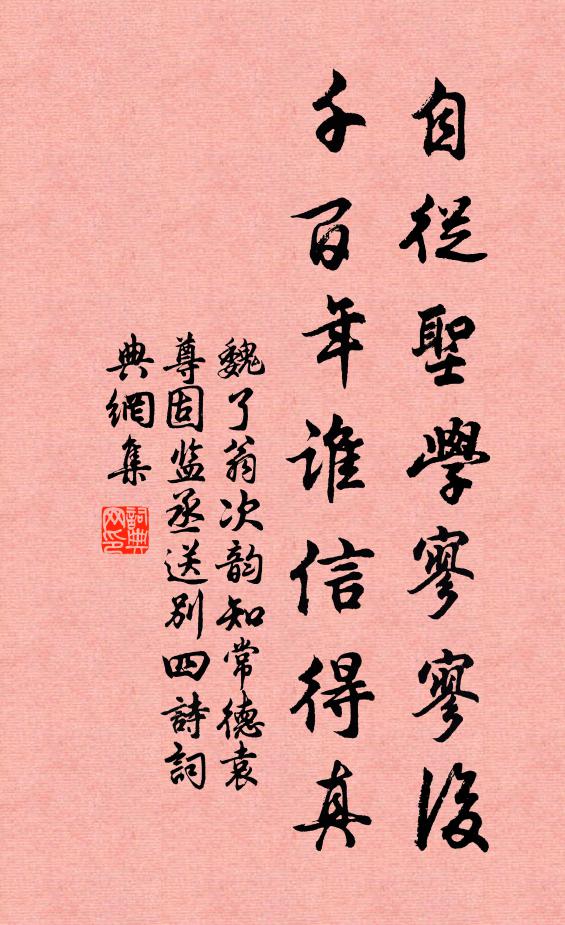 自從聖學寥寥後
千百年誰信得真
魏了翁次韵知常德袁
尊固监丞送别四詩詞
典網集
詞典
网印